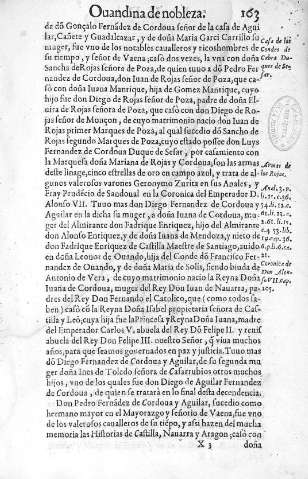 Ouandina de nobleza. 163
de dõ Gonçalo Fernãdez de Cordoua señor de la casa de Agui
lar, Cañete y Guadalcazar, y de doña Maria Garci Carrillo su
muger, fue vno de los notables caualleros y ricoshombres de
su tiempo, y señor de Vaena, casò dos vezes, la vna con doña
Sancha de Rojas señora de Poza, de quien tuuo a dõ Pedro Fer
nandez de Cordoua, don Iuan de Rojas señor de Poza, que ca-
sò con doña Iuana Manrique, hija de Gomez Mantique, cuyo
hijo fue don Diego de Rojas señor de Poza, padre de doña El
uira de Rojas señora de Poza, que casò con don Diego de Ro-
jas señor de Mouçon, de cuyo matrimonio nacio don Iuan de
Rojas primer Marques de Poza, al qual sucedio dõ Sancho de
Rojas segundo Marques de Poza, cuyo estado possee don Luys
Fernandez de Cordoua Duque de Sesa, por casamiento con
la Marquesa doña Mariana de Rojas y Cordoua, son las armas
deste linage, cinco estrellas de oro en campo azul, y trata de al-
gunos valerosos varones Geronymo Zurita en sus Anales, y
Fray Prudécio de Sandoual en la Coronica del Emperador D.
Alonso VII. Tuuo mas don Diego Fernandez de Cordoua y
Aguilar en la dicha su muger, a doña Iuana de Cordoua, mu-
ger del Almirante don Fadrique Enriquez, hijo del Almirante
don Alonso Enriquez, y de doña Iuana de Mendoça, y nieto de
don Fadrique Enriquez de Castilla Maestre de Santiago,
en doña Leonor de Ouando, hija del Conde dõ Francisco Fer-
nandez de Ouando, y de doña Maria de Solis, siendo biuda de
Antonio de Vera, de cuyo matrimonio nacio la Reyna Doña
Iuana de Cordoua, muger del Rey don Iuan de Nauarra, pa-
dres del Rey Don Fernando el Catolico, que (como todos sa-
ben) casò cõ la Reyna Doña Isabel propietaria señora de Casti-
lla y Leõ, cuya hija fue la Princesa y Reyna Doña Iuana, madre
del Emperador Carlos V. abuela del Rey Dõ Felipe II. y
abuela del Rey Don Felipe III. nuestro Señor, q̃ viua muchos
años, para que seamos gouernados en paz y justicia. Tuuo mas
dõ Diego Fernandez de Cordoua y Aguilar, de su segunda mu
ger doña Ines de Toledo señora de Casarrubios otros muchos
hijos, vno de los quales fue don Diego de Aguilar Fernandez
de Cordoua, de quien se tratarà en lo final desta decendencia.
Don Pedro Fernandez de Cordoua y Aguilar, sucedio como
hermano mayor en el Mayorazgo y señorio de Vaena, fue vno
de los valerosos caualleros de su tiẽpo, y assi hazen del mucha
memoria las Historias de Castilla, Nauarra y Aragon, casò con
X 3 doña
Casa de los
Condes de
Cabra Du-
ques de Ses-
sa.
Armas de
los Rojas.